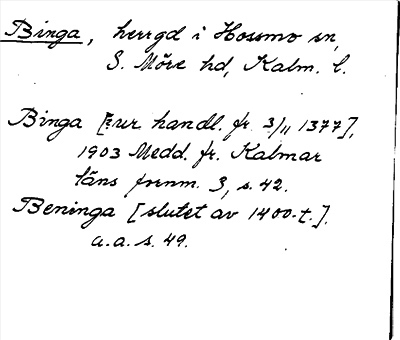 Binga, herrgd i Hossmo sn,
S. Möre hd, Kalm. l.
Binga [ur handl. fr. 3/11 1377],
1903 Medd. fr. Kalmar
läns fornm. 3, s. 42.
Beninga [slutet av 1400-t.].
a.a. s. 49.